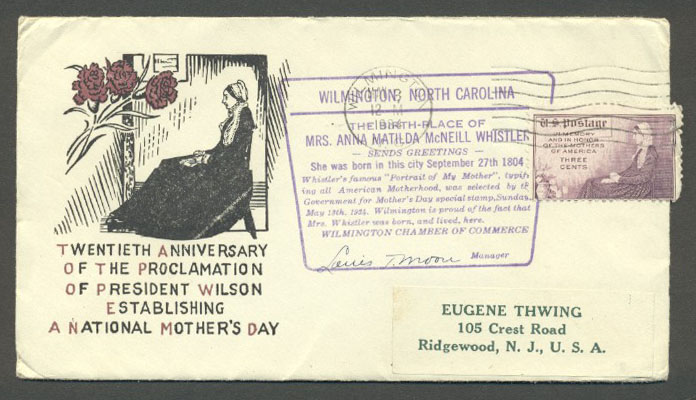 TWENTIETH ANNIVERSARY
OF THE PROCLAMATION
OF PRESIDENT WILSON
ESTABLISHING
A NATIONAL MOTHER'S DAY
WILMINGT
12 M
WILMINGTON, NORTH CAROLINA
THE BIRTH-PLACE OF
MRS. ANNA MATILDA McNEILL WHISTLER
— SENDS GREETINGS —
She was born in this city September 27th 1804
Whistler's famous "Portrait of My Mother", typify-
ing all American Motherhood, was selected by the
Government for Mother's Day special stamp, Sunday
May 13th, Wilmington is proud of the fact that
Mrs. Whistler was born, and lived, here.
WILMINGTON CHAMBER OF COMMERCE
Louis T. Moore Manager
U S Postage
IN MEMORY
AND IN HONOR
OF THE MOTHERS
OF AMERICA
THREE
CENTS
EUGENE THWING
105 Crest Road
Ridgewood, N. J., U. S. A.